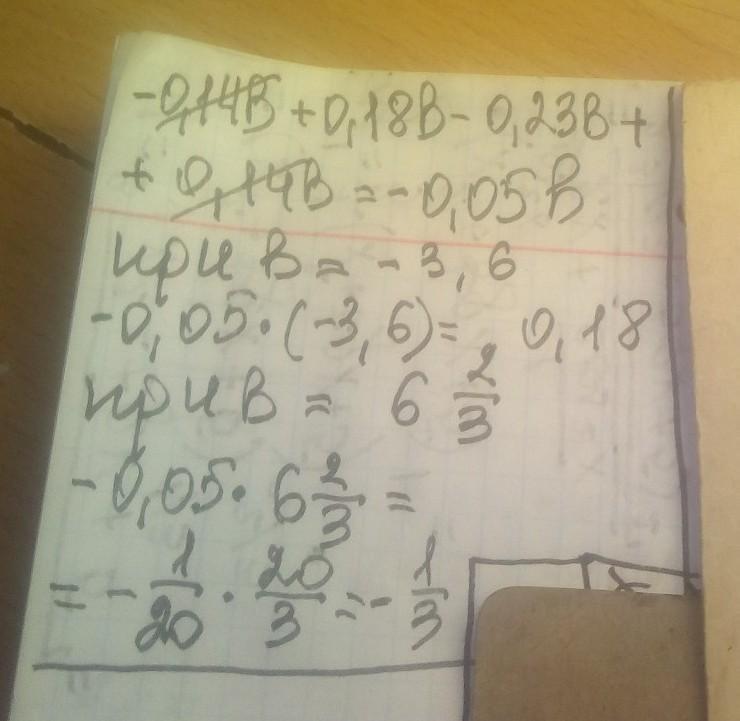 -0,14В + 0,18В - 0,23В +
+ 0,14В = -0,05В
при В = -3,6
-0,05·(-3,6) = 0,18
при В = 6 2/3
-0,05· 6 2/3 =
= - 1/20 · 20/3 = - 1/3